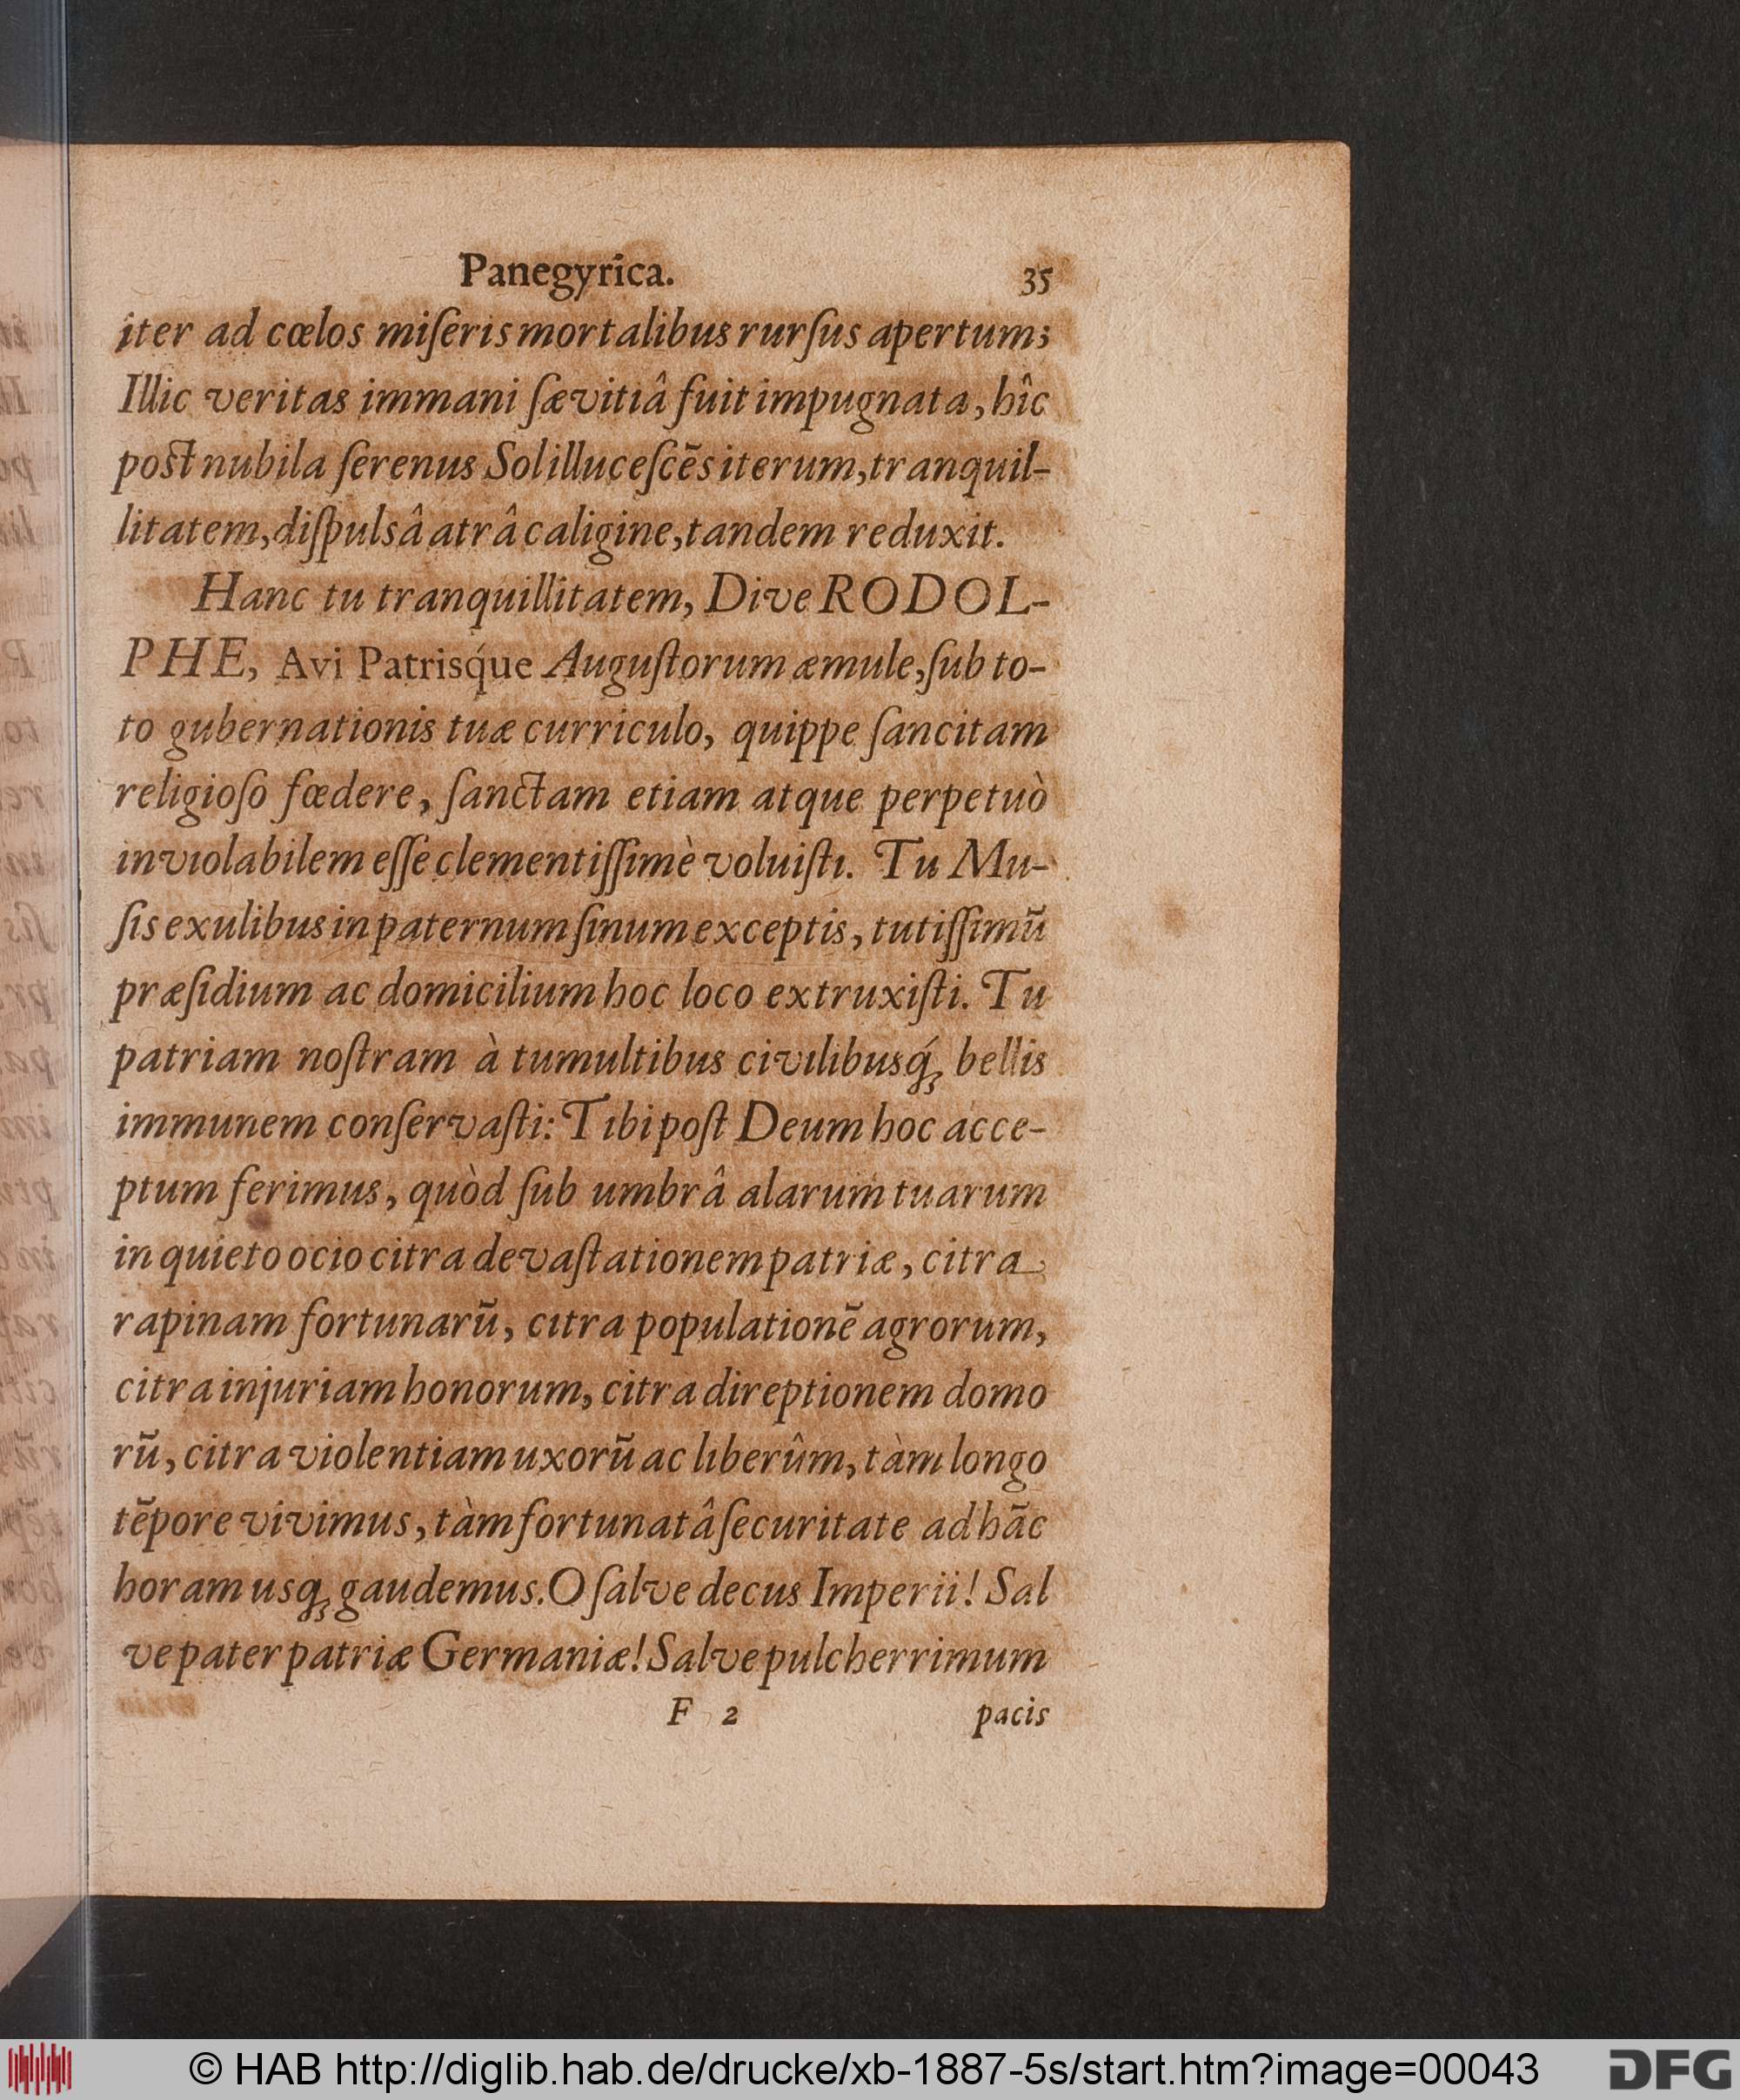 Panegyrica. 35
iter ad cœlos miſeris mortalibus rurſus apertum;
Illic veritas immani ſævitiâ fuit impugnata, hîc
post nubila ſerenus Sol illuceſcẽs iterum, tranquil-
litatem, diſpulsâ atrâ caligine, tandem reduxit.
Hanc tu tranquillitatem, Dive RODOL-
PHE, Avi Patrisq́ue Auguſtorum æmule, ſub to-
to gubernationis tuæ curriculo, quippe ſancitam
religioſo fœdere, ſanctam etiam atque perpetuò
inviolabilem eſſe clementiſſimè voluiſti. Tu Mu-
ſis exulibus in paternum ſinum exceptis, tutiſſimũ
præſidium ac domicilium hoc loco extruxiſti. Tu
patriam noſtram à tumultibus civilibusq́; bellis
immunem conſervaſti: Tibi poſt Deum hoc acce-
ptum ferimus, quòd ſub umbrâ alarum tuarum
in quieto ocio citra devaſtationem patriæ, citra
rapinam fortunarũ, citra populationẽ agrorum,
citra injuriam honorum, citra direptionem domo
rũ, citra violentiam uxorũ ac liberûm, tàm longo
tẽpore vivimus, tàm fortunatâ ſecuritate ad hãc
horam usq; gaudemus. O ſalve decus Imperii! Sal
ve pater patriæ Germaniæ! Salve pulcherrimum
F 2 pacis
© HAB http://diglib.hab.de/drucke/xb-1887-5s/start.htm?image=00043
DFG